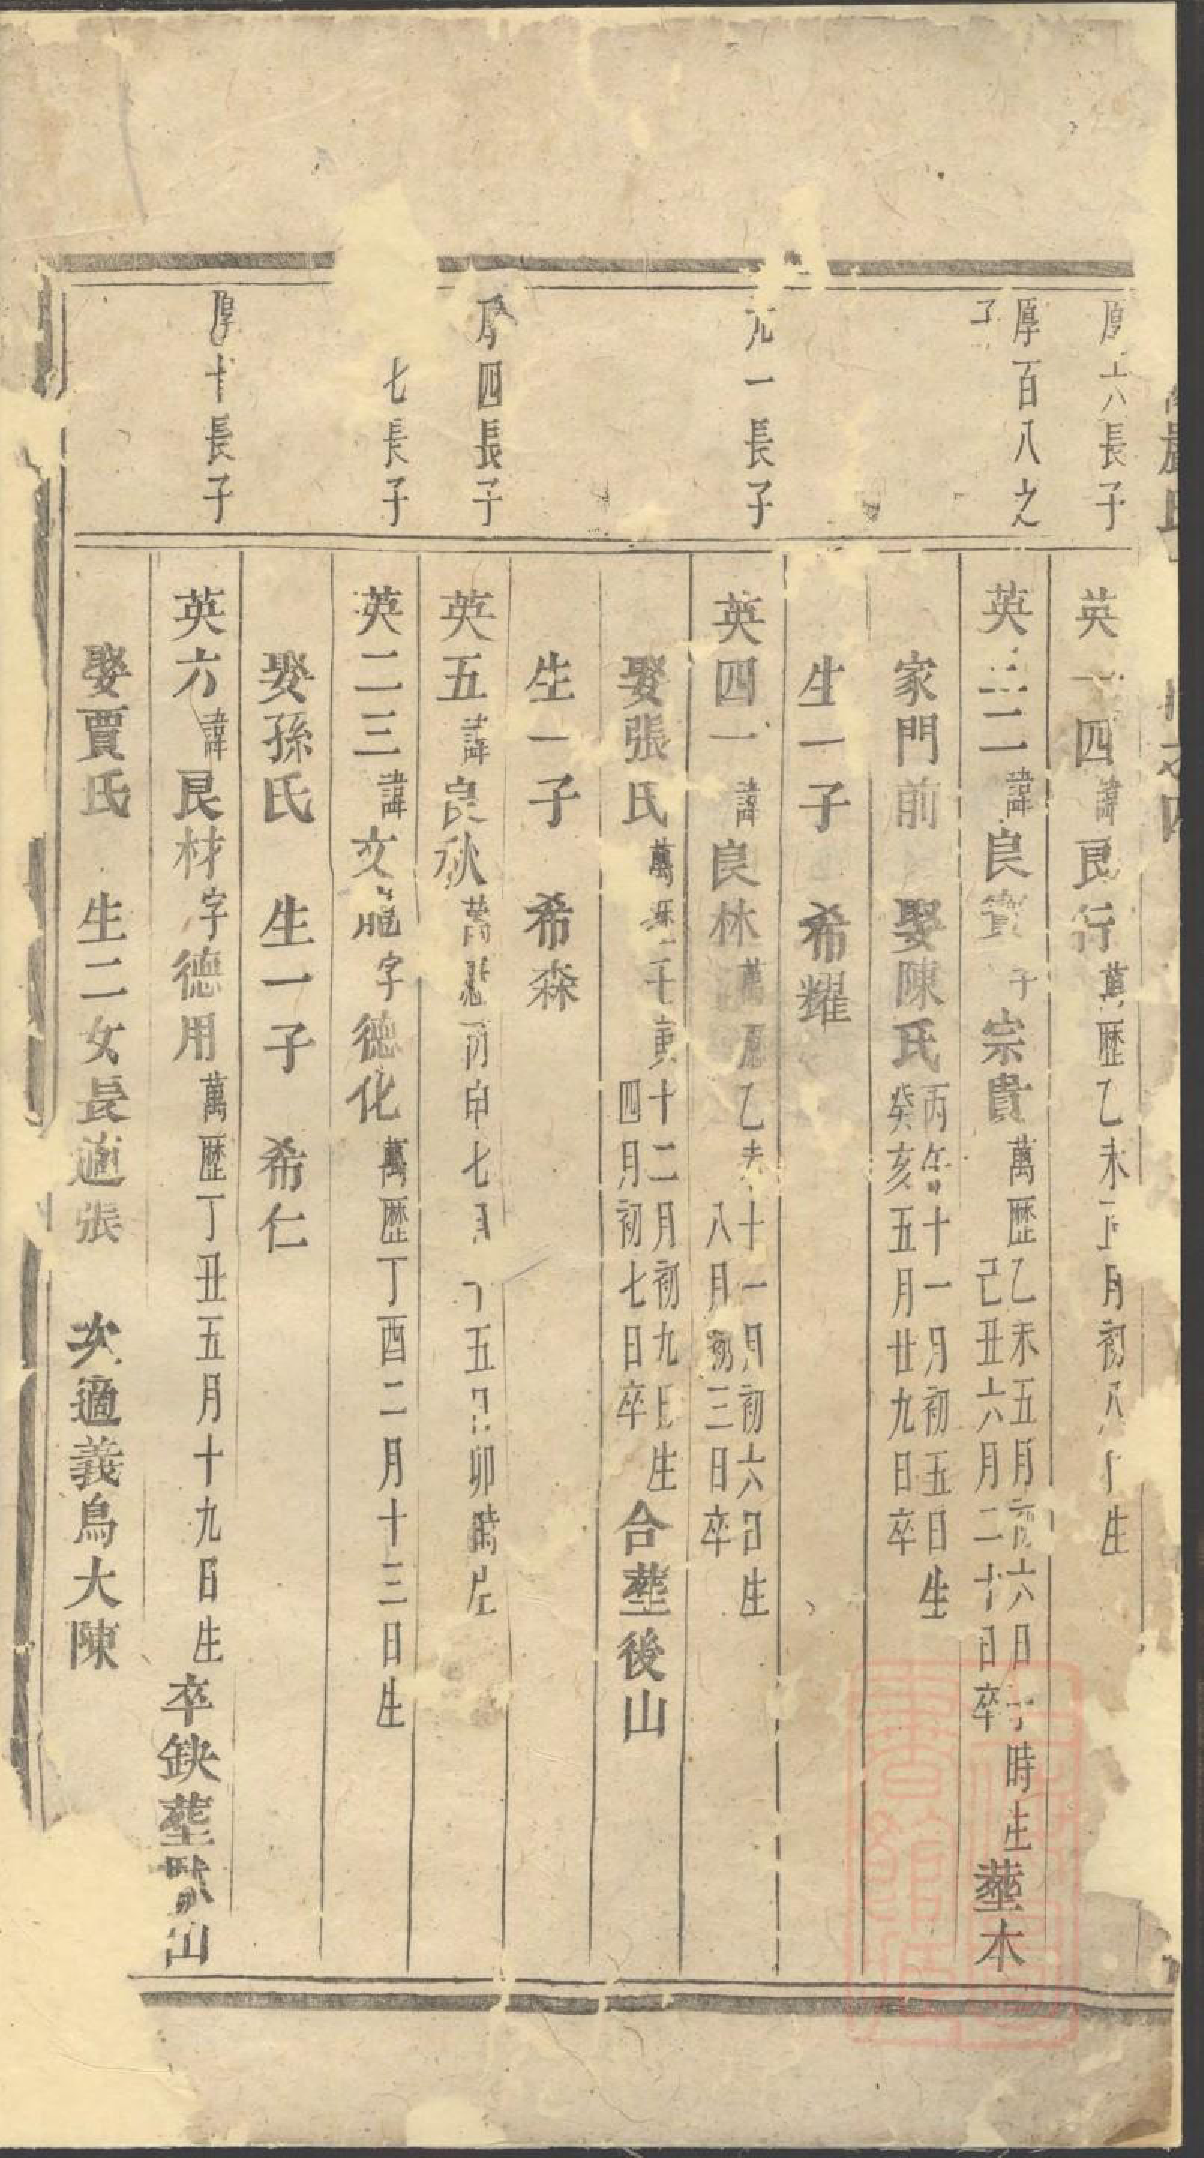 長子
英 四諱良行萬歷乙未 月初 生
厚百八之
子
英 二諱良 宗貴萬歷乙未五月初六日子時生
己丑六月二十日卒
塟木
家門前 娶陳氏丙午十一月初五日生
癸亥五月廿九日卒
生一子 希耀
一長子
英四一諱良林萬歷乙未十一月初六日生
八月初三日卒
娶張氏萬歷 寅十二月初九日生
四月初七日卒
合塟後山
生一子 希森
厚四長子
英五諱良秋萬歷丙申七月 五日卯時生
七長子
英二三諱文 字德化萬歷丁酉二月十三日生
娶孫氏 生一子 希仁
厚十長子
英六諱良材字德用萬歷丁丑五月十九日生卒缺塟 山
娶賈氏 生二女長適張 次適義烏大陳